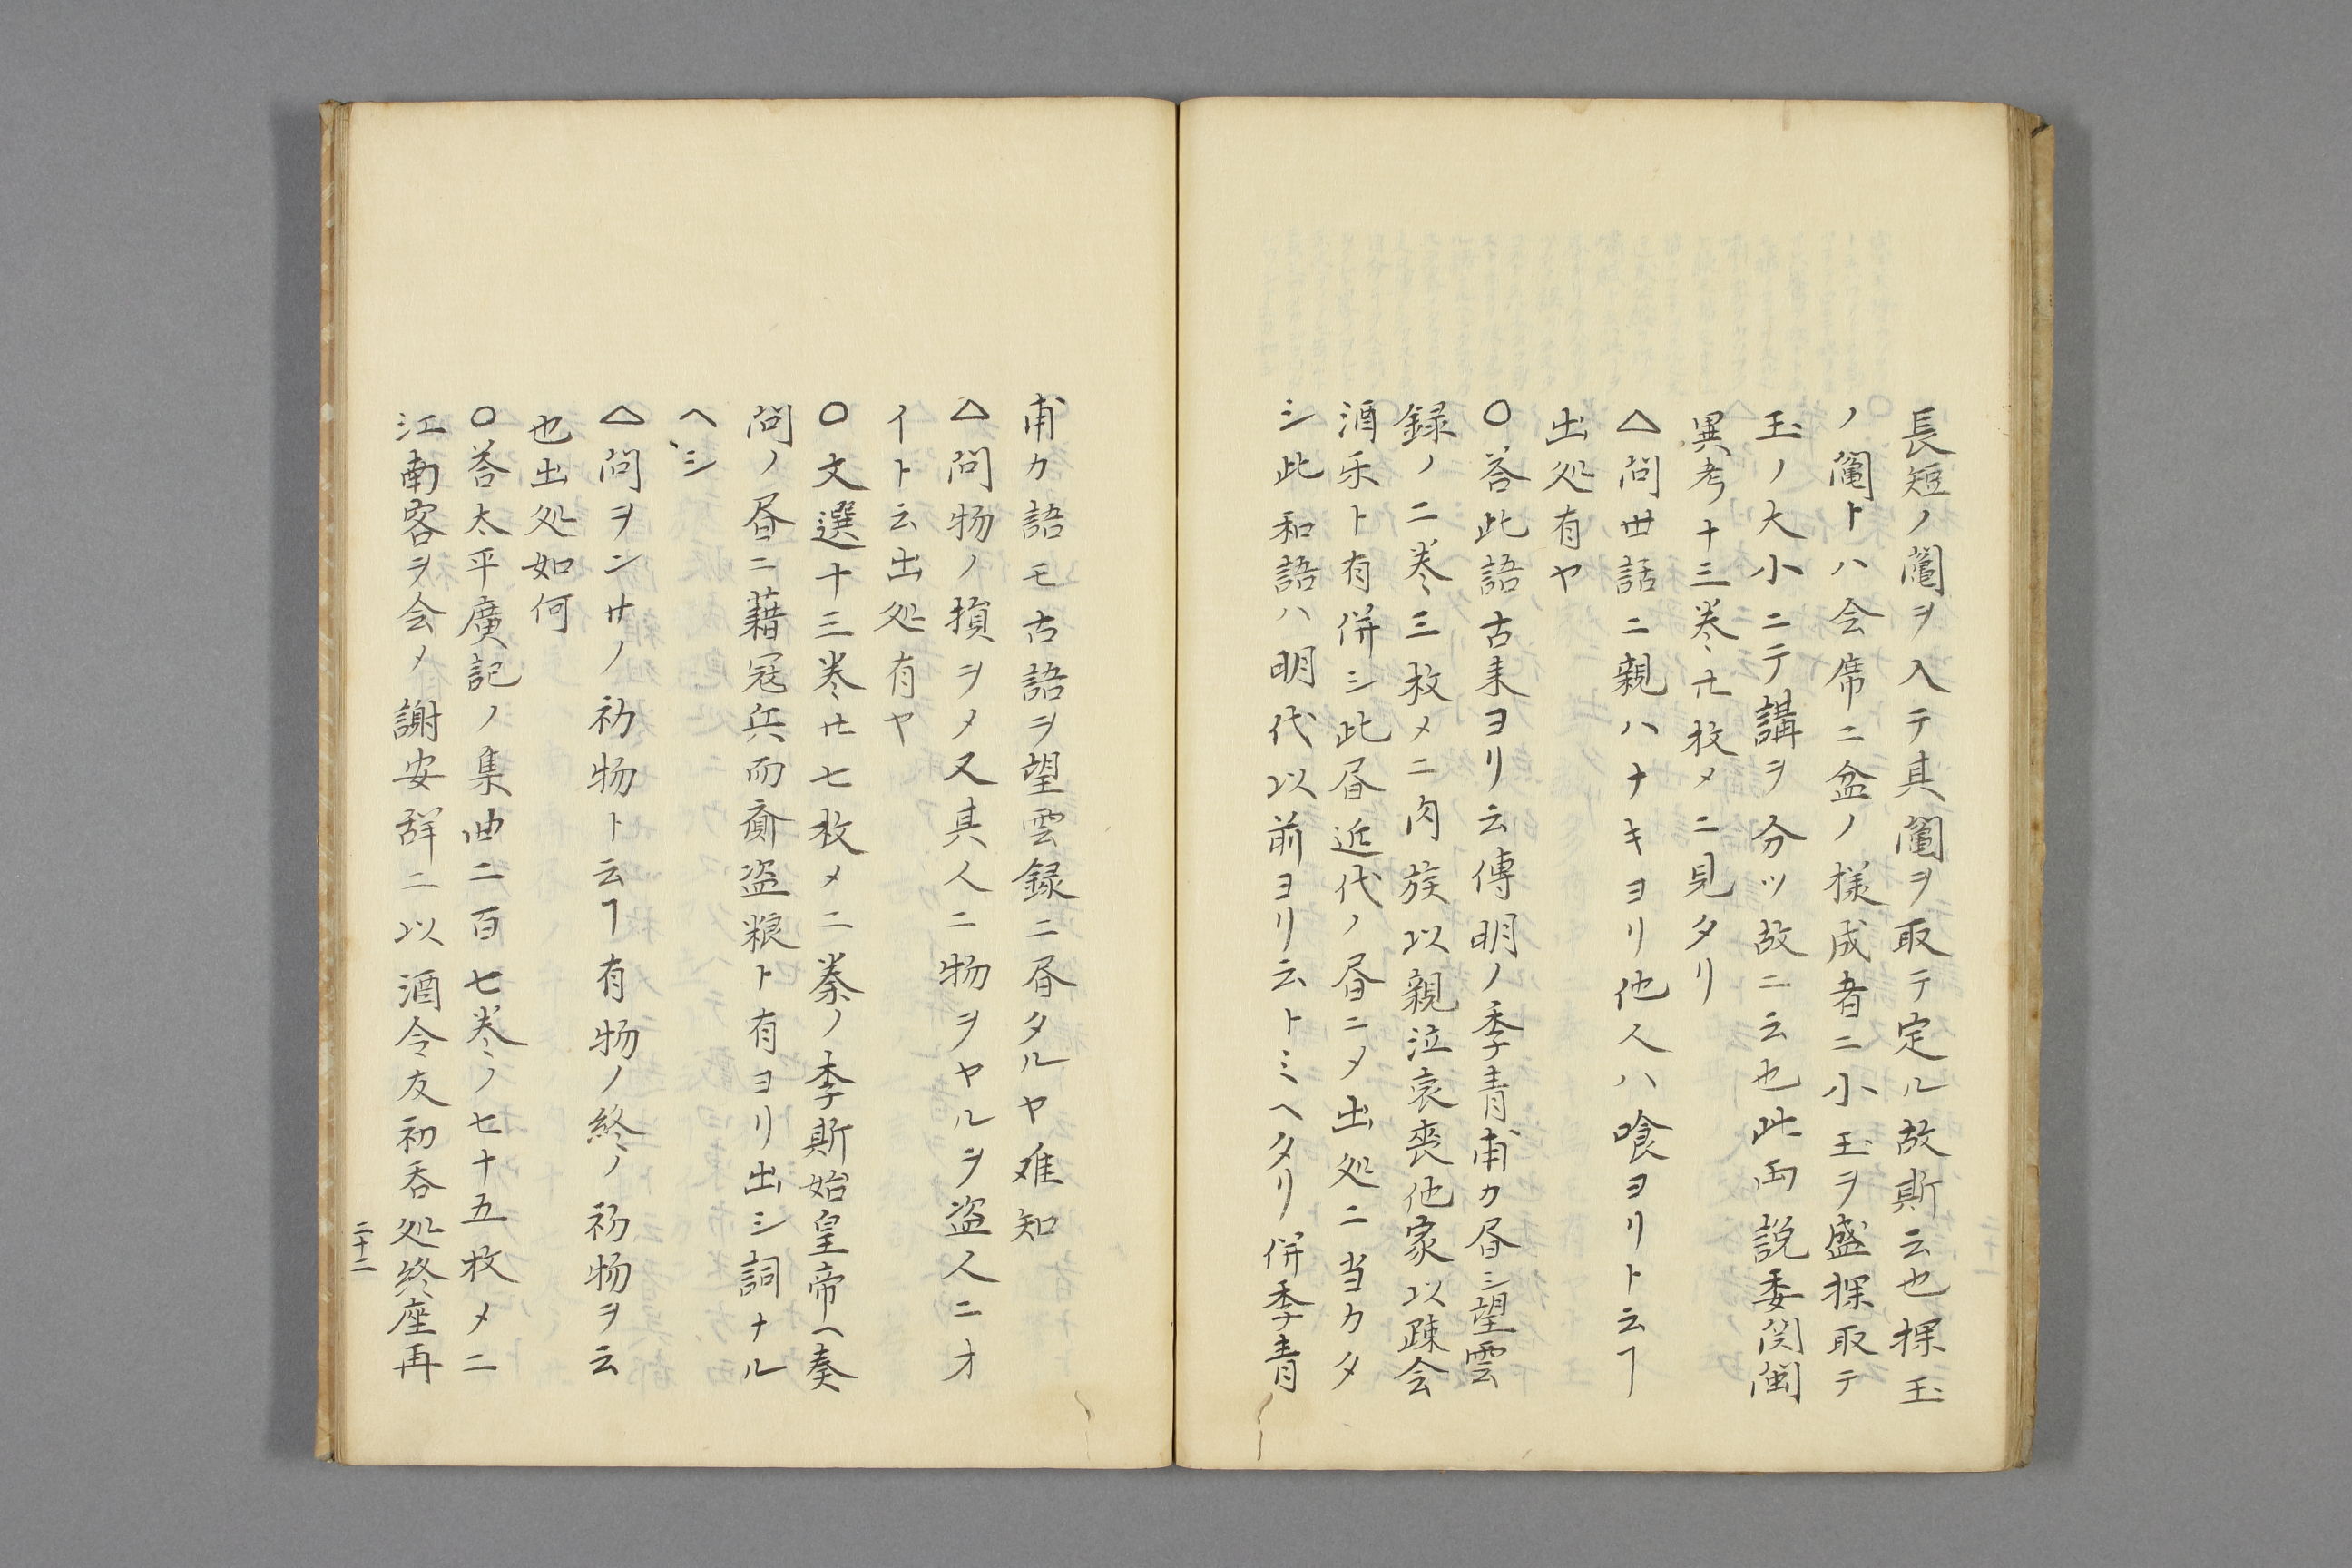 長短ノ鬮ヲ入テ其鬮ヲ取テ定ル故斯云也探玉
ノ鬮トハ会席ニ盆ノ様成者ニ小玉ヲ盛探取テ
玉ノ大小ニテ講ヲ分ツ故ニ云也此両説委関閩
異考十三巻卅枚メニ見タリ
△問世話ニ親ハナキヨリ他人ハ喰ヨリト云ヿ
出処有ヤ
〇答此語古来ヨリ云傳明ノ季青甫カ昼ニ望雲
録ノ二巻三枚メニ肉族以親泣哀喪他家以疎会
酒乐ト有併シ此昼近代ノ昼ニメ出処ニ当カタ
シ此和語ハ明代以前ヨリ云トミヘタリ併季青
甫カ語モ古語ヲ望雲録ニ昼タルヤ难知
△問物ノ損ヲメ又其人ニ物ヲヤルヲ盗人ニオ
イト云出処有ヤ
〇文選十三巻卅七枚メニ秦ノ李斯始皇帝ヘ奏
問ノ昼ニ藉冦兵而齎盗粮ト有ヨリ出シ詞ナル
ヘシ
△問ヲンサノ初物ト云ヿ有物ノ終ノ初物ヲ云
也出処如何
〇答太平廣記ノ集曲二百七巻ノ七十五枚メニ
江南客ヲ会メ謝安辞ニ以酒令友初呑処終座再
二十二